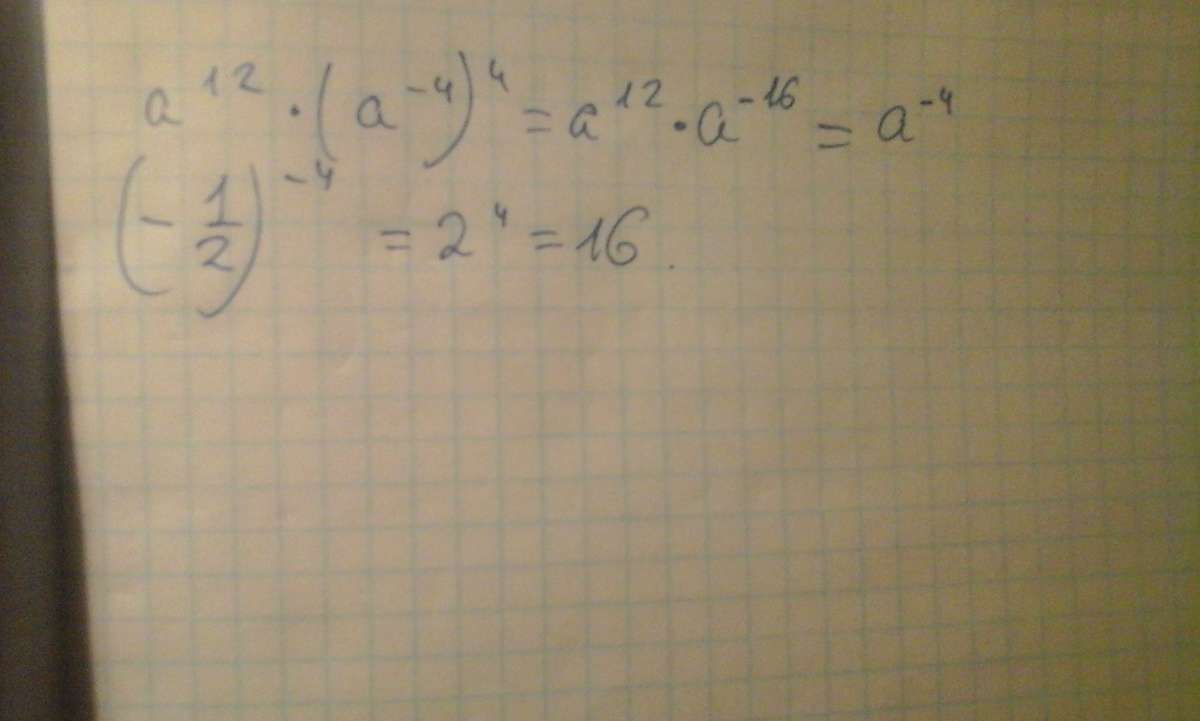 a^12 · (a^-4)^4 = a^12 · a^-16 = a^-4
(-1/2)^-4 = 2^4 = 16.